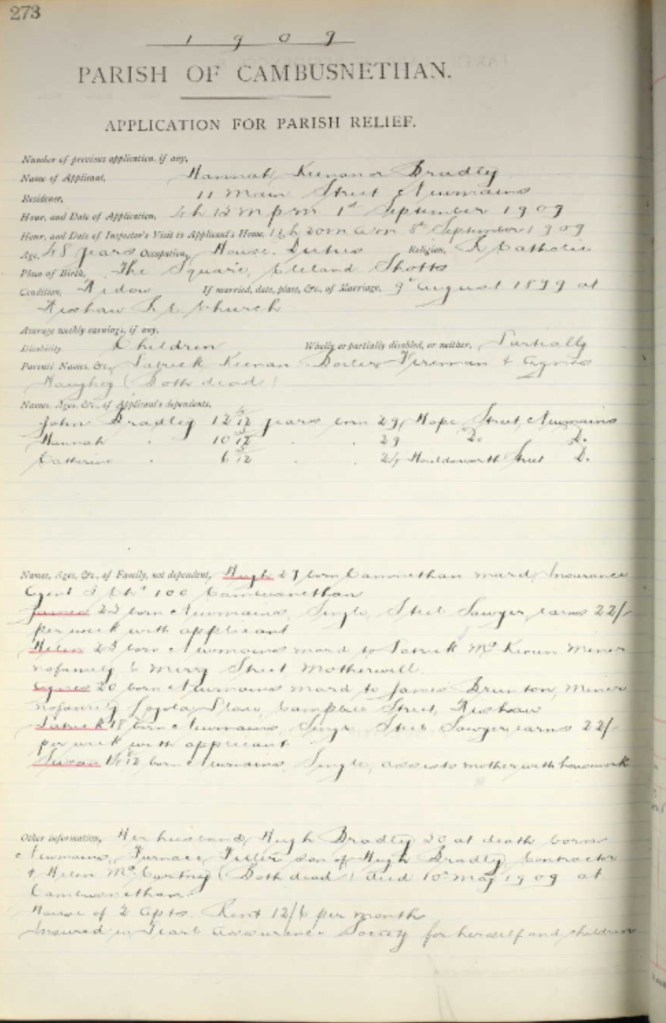 273
1909
PARISH OF CAMBUSNETHAN.
APPLICATION FOR PARISH RELIEF.
Number of previous application, if any,
Name of Applicant, Hannah Keenan or Bradley
Residence, 11 Main Street Newmains
Hour, and Date of Application, 4h 15m pm 1st September 1909
Hour, and Date of Inspector's Visit to Applicant's Home, 20m 8th September 1909
Age, 48 years Occupation, House Duties Religion, R Catholic
Place of Birth, The Square, Cleland Shotts
Condition, Widow If married, date, place, &c., of Marriage, 9th August 18 at
Wishaw R C Church
Average weekly earnings, if any,
Disability Children Wholly or partially disabled, or neither, Partially
Parents Names, &c., Patrick Keenan Boiler Fireman & Agnes
Haughey (Both dead)
Names, Ages, &c., of Applicant's dependents,
John Bradley 12 /12 years born 29 Hope Street, Newmains
Hannah " 10 /12 " " 29 Do. Do.
Catherine " 6 /12 " " Houldsworth Street Do.
Names, Ages, &c., of Family, not dependent, Hugh 27 born Cambusnethan mard, Insurance
Agent 100 Cambusnethan
James 22 born Newmains, Single, Steel Sawyer, earns 22/-
per week with applicant
Helen 23 born Newmains mard to Patrick McKeown Miner
no family 6 Merry Street Motherwell
Agnes 20 born Newmains mard to James Brunton, Miner
no family Place Campbell Street, Wishaw
Patrick 18 born Newmains, Single Steel Sawyer, earns 22/-
per week with applicant
Susan /12 born Newmains, Single, assists mother with housework
Other information, Her husband, Hugh Bradley 50 at death born
Newmains, Furnace Filler son of Hugh Bradley Contractor
& Helen McCourtney (Both dead) died 10th May 1909 at
Cambusnethan.
House of 2 Apts. Rent 12/6 per month
Insured in Pearl Assurance Society for herself and children